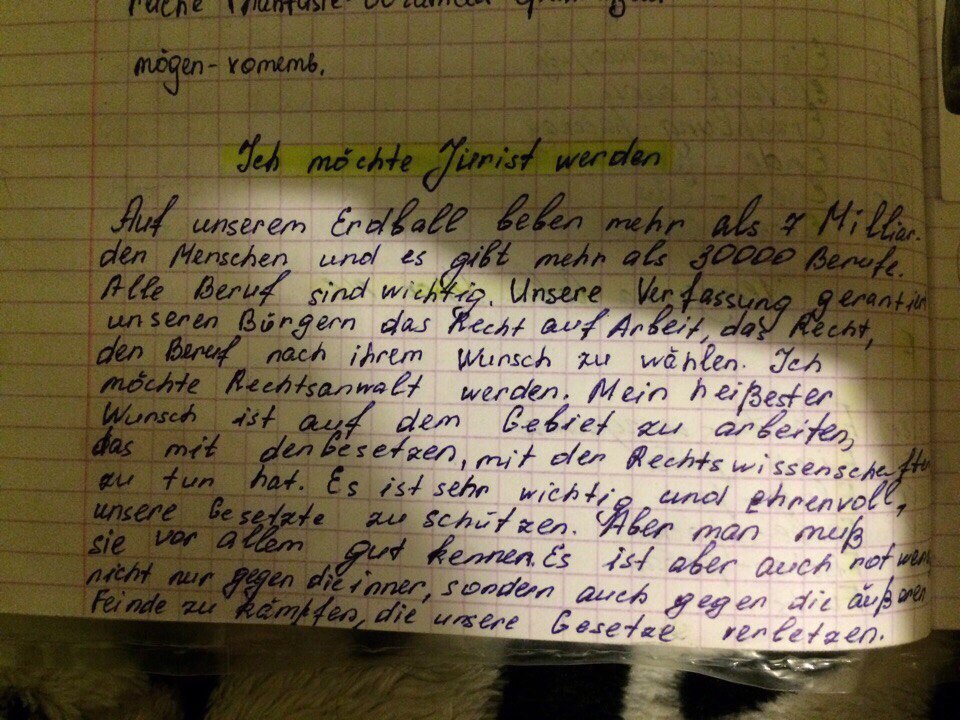 mögen-хотеть.
Ich möchte Jurist werden
Auf unserem Erdball beben mehr als 7 Milliar-
den Menschen und es gibt mehr als 30000 Berufe.
Alle Beruf sind wichtig. Unsere Verfassung gerantier
unseren Bürgern das Recht auf Arbeit, das Recht,
den Beruf nach ihrem Wunsch zu wählen. Ich
möchte Rechtsanwalt werden. Mein heißester
Wunsch ist auf dem Gebiet zu arbeiten,
das mit den Gesetzen, mit der Rechtswissenschaft
zu tun hat. Es ist sehr wichtig und ehrenvoll,
unsere Gesetzte zu schützen. Aber man muß
sie vor allem gut kennen. Es ist aber auch notwen
nicht nur gegen die inner, sondern auch gegen die äußaren
Feinde zu kämpfen, die unsere Gesetze verletzen.